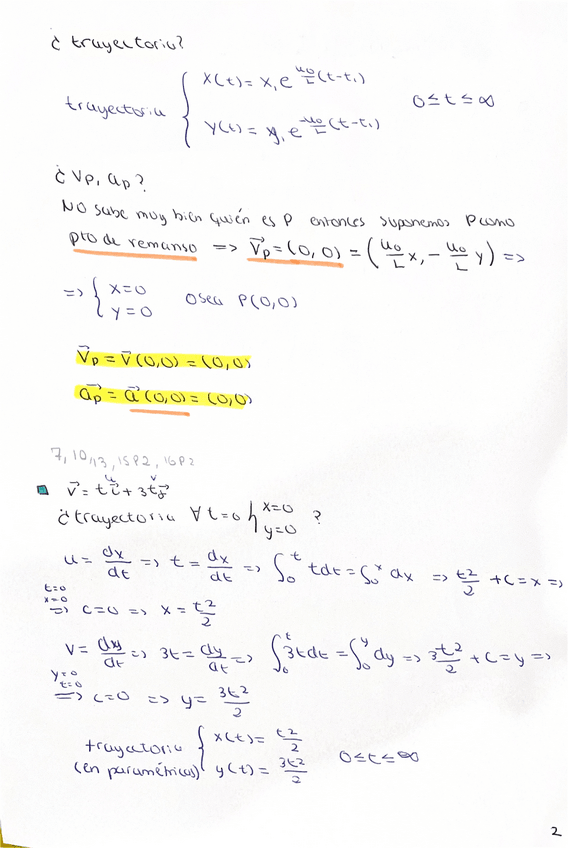 ¿ trayectoria?
trayectoria { x(t) = x₁ e^(u₀/L (t-t₁))
y(t) = y₁ e^(-u₀/L (t-t₁)) 0 ≤ t ≤ ∞
¿ Vp, ap?
NO sabe muy bien quién es P entonces suponemos P como
pto de remanso => V⃗p = (0,0) = (u₀/L x, - u₀/L y) =>
=> { x=0
y=0 O sea P(0,0)
V⃗p = v⃗ (0,0) = (0,0)
a⃗p = a⃗ (0,0) = (0,0)
7, 10, 13, 15P2, 16P2
u v
v⃗ = t i⃗ + 3t j⃗
¿trayectoria ∀ t=0 { x=0
y=0 ?
u = dx/dt => t = dx/dt => ∫₀ᵗ t dt = ∫₀ˣ dx => t²/2 + C = x =>
t=0
x=0
=> C=0 => x = t²/2
V = dy/dt => 3t = dy/dt => ∫₀ᵗ 3t dt = ∫₀ʸ dy => 3t²/2 + C = y =>
y=0
t=0
=> C=0 => y = 3t²/2
trayectoria { x(t) = t²/2
(en paramétricas) y(t) = 3t²/2 0 ≤ t ≤ ∞
2